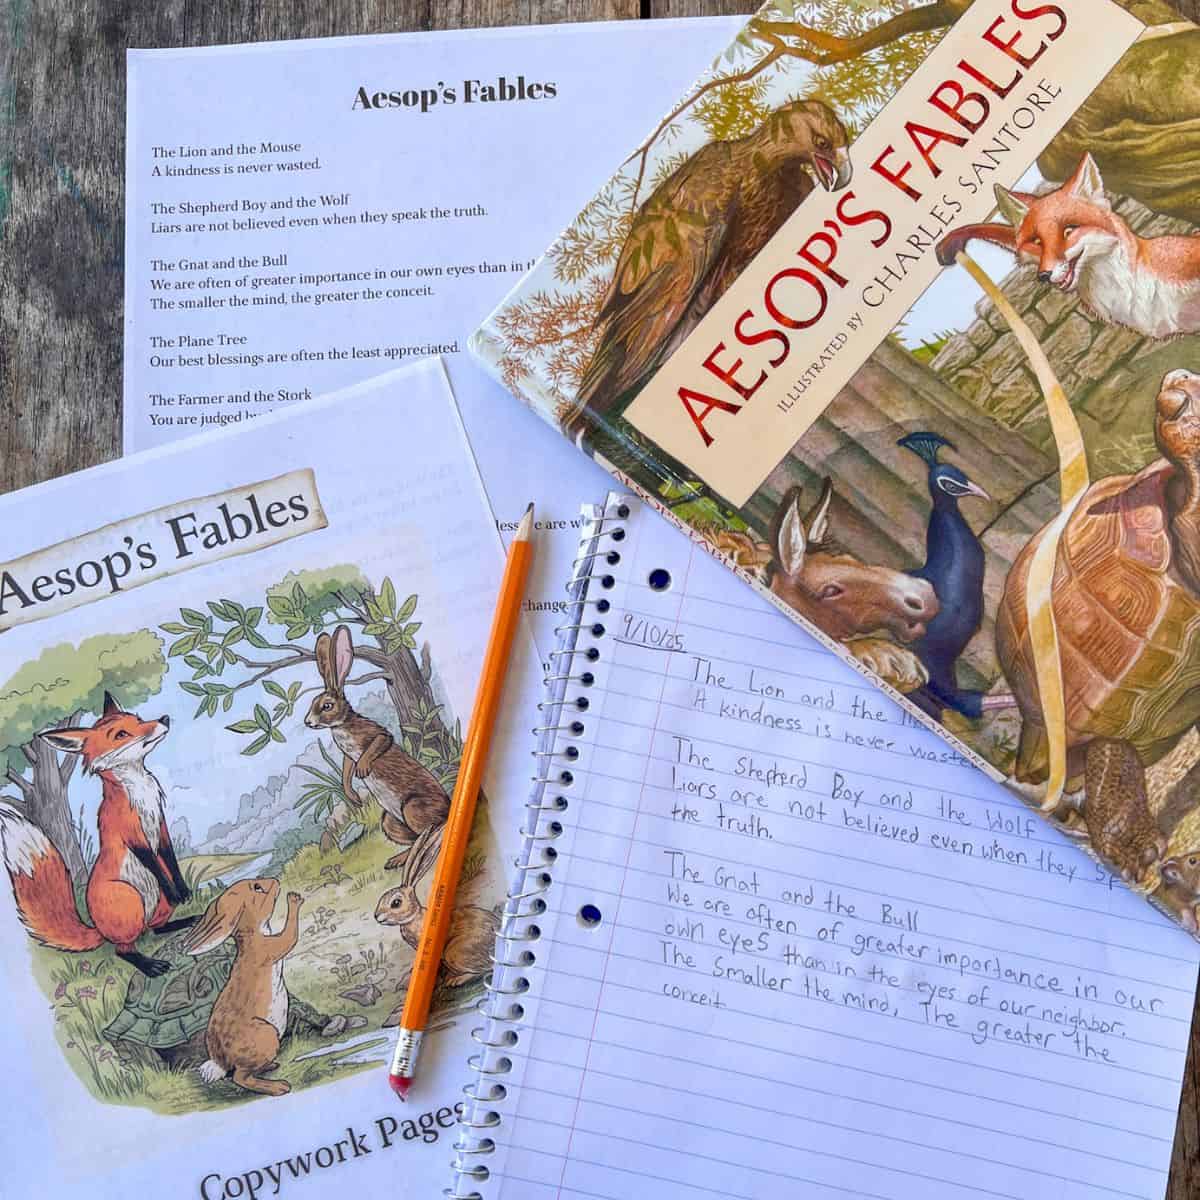 Aesop's Fables
The Lion and the Mouse
A kindness is never wasted.
The Shepherd Boy and the Wolf
Liars are not believed even when they speak the truth.
The Gnat and the Bull
We are often of greater importance in our own eyes than in
The smaller the mind, the greater the conceit.
The Plane Tree
Our best blessings are often the least appreciated.
The Farmer and the Stork
You are judged
are
change
AESOP'S FABLES
ILLUSTRATED BY CHARLES SANTORE
AESOP'S FABLES
Aesop's Fables
Copywork Pages
9/10/25
The Lion and the
A kindness is never
The Shepherd Boy and the Wolf
Liars are not believed even when they
the truth.
The Gnat and the Bull
We are often of greater importance in our
own eyes than in the eyes of our neighbor.
The Smaller the mind, The greater the
conceit.